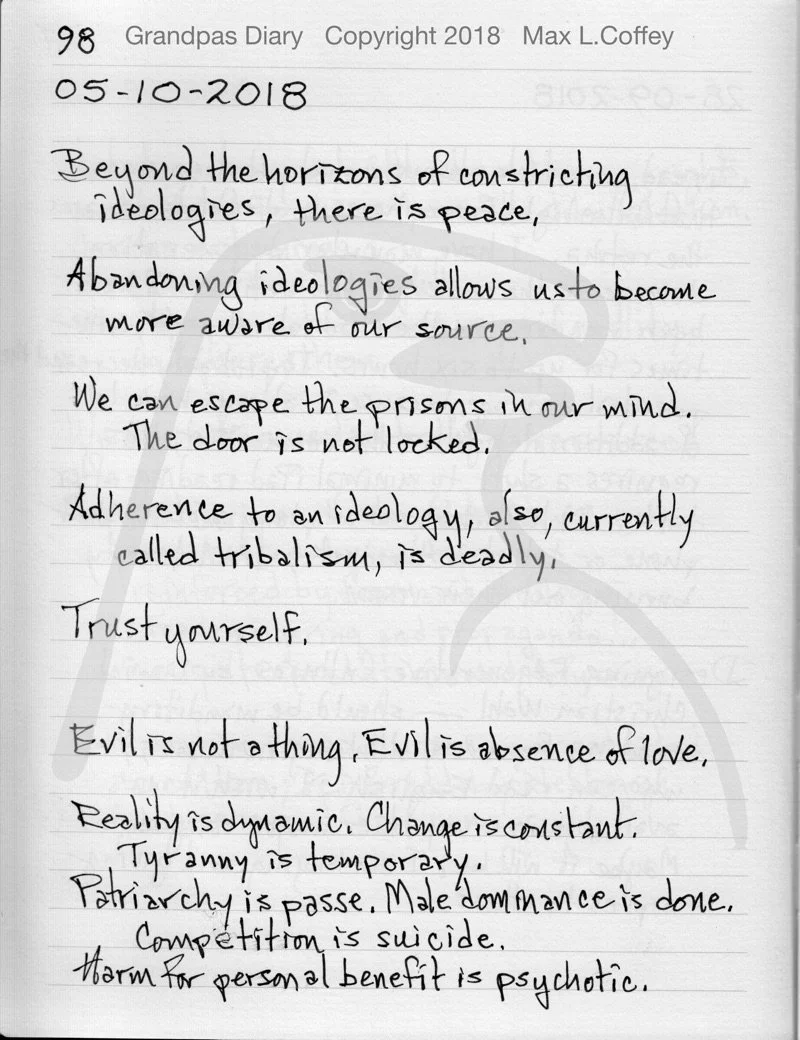 98 Grandpas Diary Copyright 2018 Max L.Coffey
05-10-2018
Beyond the horizons of constricting
ideologies, there is peace,
Abandoning ideologies allows us to become
more aware of our source.
We can escape the prisons in our mind.
The door is not locked.
Adherence to an ideology, also, currently
called tribalism, is deadly.
Trust yourself.
Evil is not a thing. Evil is absence of love.
Reality is dynamic. Change is constant.
Tyranny is temporary.
Patriarchy is passe. Male dominance is done.
Competition is suicide.
Harm for personal benefit is psychotic.